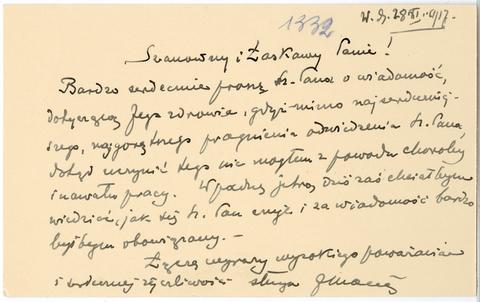 1332
W. D. 28 XI. 1917.
Szanowny i Łaskawy Panie!
Bardzo serdecznie proszę Sz. Pana o wiadomość,
dotyczącą Jego zdrowia, gdyż mimo najserdeczniej-
szego, najgorętszego pragnienia odwiedzenia Sz. Pana,
dotąd uczynić tego nie mogłem z powodu choroby
i nawału pracy. Wpadnę jutro, dziś zaś chciałbym
wiedzieć, jak się Sz. Pan czuje i za wiadomość bardzo
byłbym obowiązany. —
Łączę wyrazy wysokiego poważania
i serdecznej życzliwości sługa